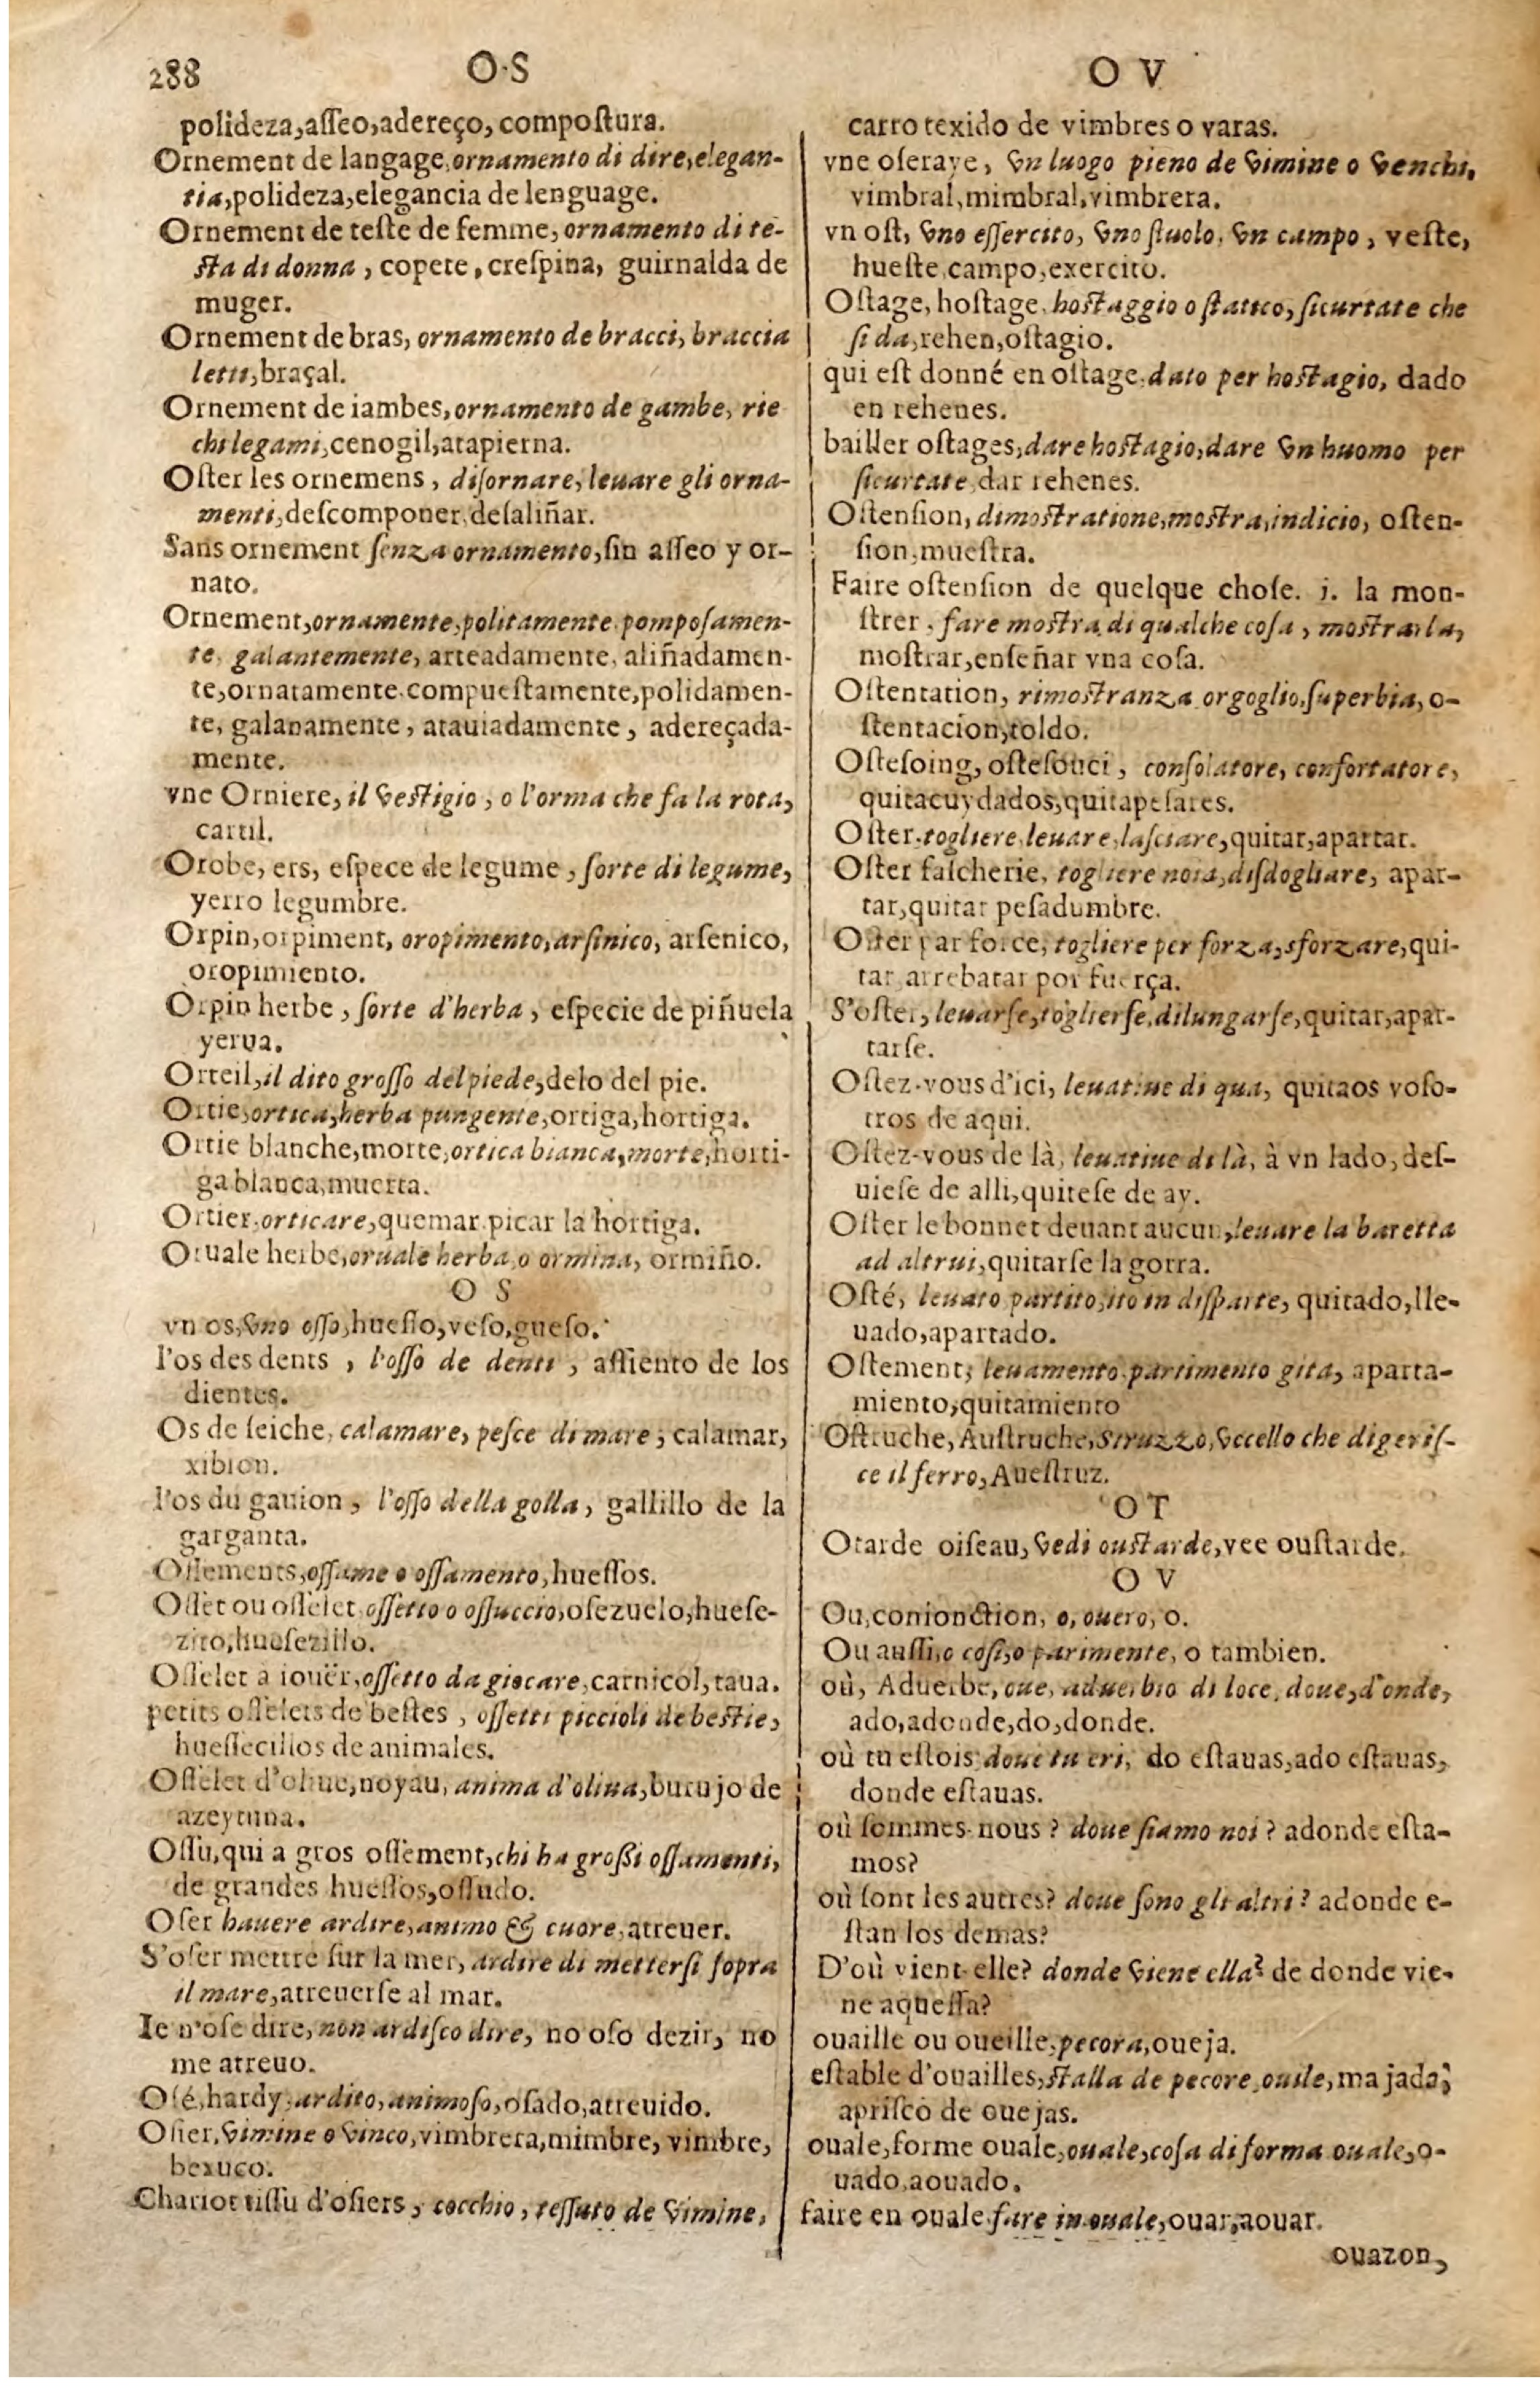 288
O·S
polideza,aſſeo,adereço, compoſtura.
Ornement de langage,ornamento di dire,elegan-
tia,polideza,elegancia de lenguage.
Ornement de teſte de femme, ornamento di te-
ſta di donna , copete , creſpina, guirnalda de
muger.
Ornement de bras, ornamento de bracci, braccia
letti,braçal.
Ornement de iambes,ornamento de gambe, rie
chi legami,cenogil,atapierna.
Oſter les ornemens , diſornare, leuare gli orna-
menti,deſcomponer,deſaliñar.
Sans ornement ſenza ornamento,ſin aſſeo y or-
nato.
Ornement,ornamente,politamente,pompoſamen-
te, galantemente, arteadamente, aliñadamen-
te,ornatamente,compueſtamente,polidamen-
te, galanamente, atauiadamente , adereçada-
mente.
vne Orniere, il veſtigio , o l'orma che fa la rota,
carril.
Orobe, ers, eſpece de legume , ſorte di legume,
yerro legumbre.
Orpin,orpiment, oropimento,arſinico, arſenico,
oropimiento.
Orpin herbe , ſorte d'herba , eſpecie de piñuela
yerua.
Orteil,il dito groſſo del piede,deto del pie.
Ortie,ortica,herba pungente,ortiga,hortiga.
Ortie blanche,morte,ortica bianca,morte,horti-
ga blanca,muerta.
Ortier,orticare,quemar picar la hortiga.
Oruale herbe,oruale herba o ormina, ormiño.
O S
vn os,vno oſſo,hueſſo,veſo,gueſo.
l'os des dents , l'oſſo de denti , aſſiento de los
dientes.
Os de ſeiche, calamare, peſce di mare , calamar,
xibion.
l'os du gauion , l'oſſo della golla, gallillo de la
garganta.
Oſſements,oſſame o oſſamento,hueſſos.
Oſſet ou oſſelet,oſſetto o oſſuccio,oſezuelo,hueſe-
zito,hueſezillo.
Oſſelet à iouër,oſſetto da giocare,carnicol,taua.
petits oſſelets de beſtes , oſſetti piccioli de beſtie,
hueſſecillos de animales.
Oſſelet d'oliue,noyau, anima d'oliua,burujo de
azeytuna.
Oſſu,qui a gros oſſement,chi ha groſſi oſſamenti,
de grandes hueſſos,oſſudo.
Oſer hauere ardire,animo & cuore,atreuer.
S'oſer mettre ſur la mer, ardire di metterſi ſopra
il mare,atreuerſe al mar.
Ie n'oſe dire, non ardiſco dire, no oſo dezir, no
me atreuo.
Oſé,hardy,ardito,animoſo,oſado,atreuido.
Oſier,vimine o vinco,vimbrera,mimbre, vimbre,
bexuco.
Chariot tiſſu d'oſiers , cocchio , teſſuto de vimine,
O V
carro texido de vimbres o varas.
vne oſeraye, vn luogo pieno de vimine o venchi,
vimbral,mimbral,vimbrera.
vn oſt, vno eſſercito, vno ſtuolo, vn campo , veſte,
hueſte,campo,exercito.
Oſtage, hoſtage, hoſtaggio o ſtatico, ſicurtate che
ſi da,rehen,oſtagio.
qui eſt donné en oſtage,dato per hoſtagio, dado
en rehenes.
bailler oſtages,dare hoſtagio,dare vn huomo per
ſicurtate,dar rehenes.
Oſtenſion, dimoſtratione,moſtra,indicio, oſten-
ſion,mueſtra.
Faire oſtenſion de quelque choſe. i. la mon-
ſtrer , fare moſtra di qualche coſa , moſtrarla,
moſtrar,enſeñar vna coſa.
Oſtentation, rimoſtranza orgoglio,ſuperbia, o-
ſtentacion,toldo.
Oſteſoing, oſteſouci , conſolatore, confortatore,
quitacuydados,quitapeſares.
Oſter,togliere,leuare,laſciare,quitar,apartar.
Oſter faſcherie, togliere noia,diſdogliare, apar-
tar,quitar peſadumbre.
Oſter par force, togliere per forza,sforzare,qui-
tar,arrebatar por fuerça.
S'oſter, leuarſe,toglierſe,dilungarſe,quitar,apar-
tarſe.
Oſtez-vous d'ici, leuatiue di qua, quitaos voſo-
tros de aqui.
Oſtez-vous de là, leuatiue di là, à vn lado, deſ-
uieſe de alli,quiteſe de ay.
Oſter le bonnet deuant aucun,leuare la baretta
ad altrui,quitarſe la gorra.
Oſté, leuato partito,ito in diſparte, quitado,lle-
uado,apartado.
Oſtement, leuamento partimento gita, aparta-
miento,quitamiento
Oſtruche, Auſtruche,Struzzo,vccello che digeriſ-
ce il ferro,Aueſtruz.
OT
Otarde oiſeau, vedi ouſtarde,vee ouſtarde.
O V
Ou,conionction, o, ouero, o.
Ou auſſi,o coſi,o parimente, o tambien.
où, Aduerbe, oue, aduerbio di loco, doue,d'onde,
ado,adonde,do,donde.
où tu eſtois doue tu eri, do eſtauas,ado eſtauas,
donde eſtauas.
où ſommes-nous ? doue ſiamo noi ? adonde eſta-
mos?
où ſont les autres? doue ſono gli altri ? adonde e-
ſtan los demas?
D'où vient-elle? donde viene ella? de donde vie-
ne aqueſſa?
ouaille ou oueille,pecora,oueja.
eſtable d'ouailles,ſtalla de pecore,ouile,majada,
apriſco de ouejas.
ouale,forme ouale,ouale,coſa di forma ouale,o-
uado,aouado.
faire en ouale fare in ouale,ouar,aouar.
ouazon,